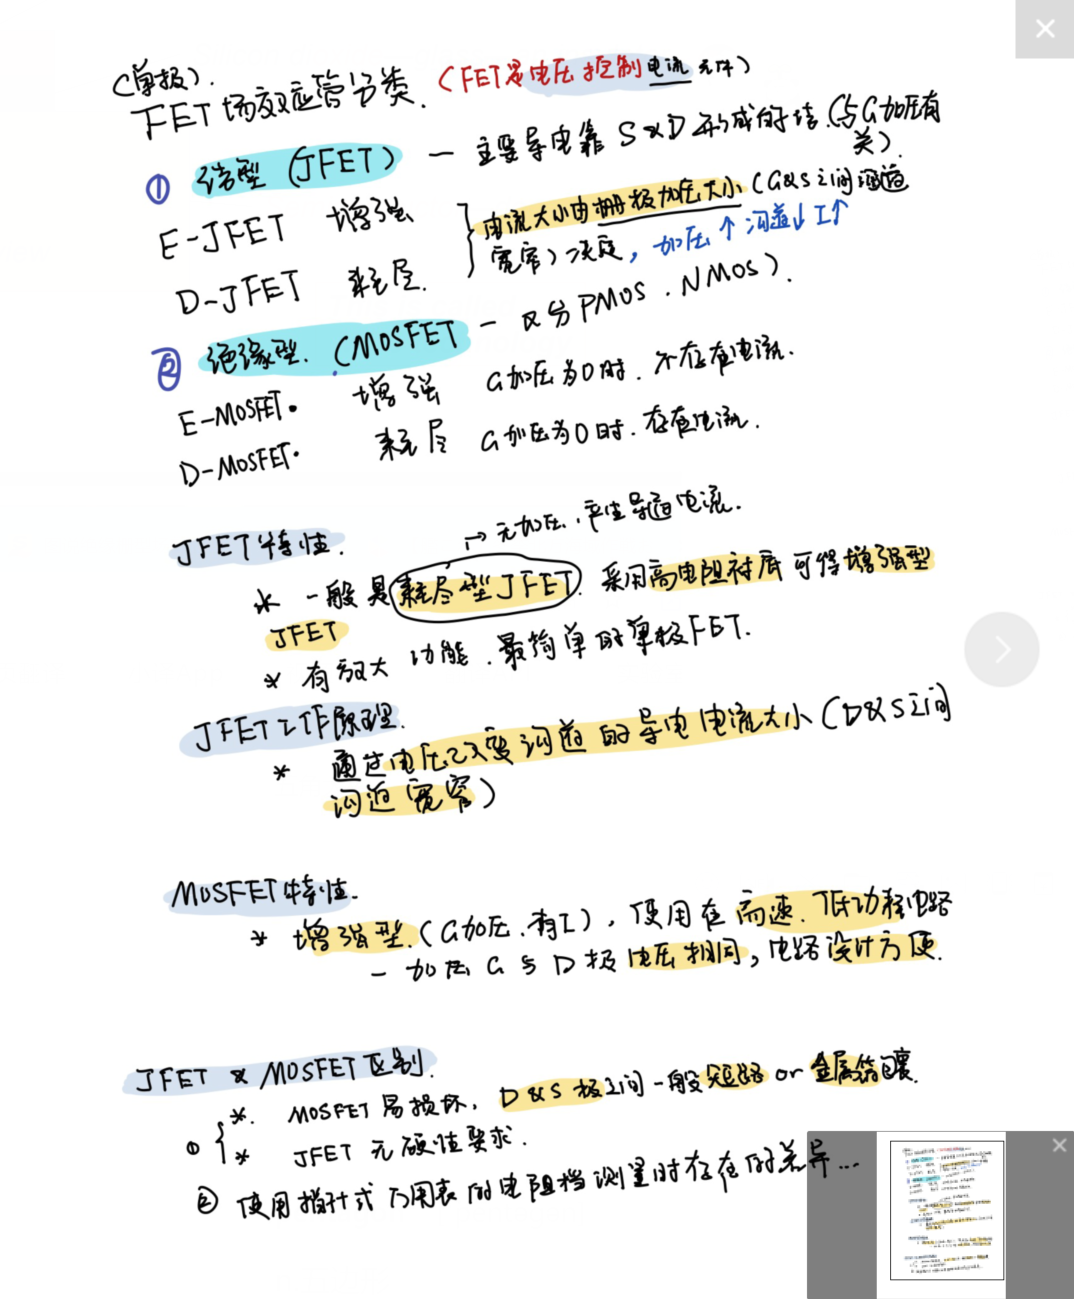 (单极).
FET 场效应管分类. (FET是电压控制电流元件)
① 结型 (JFET) — 主要导电靠 S&D 形成的结.(与G加压有关).
E-JFET 增强
D-JFET 耗尽.
电流大小由栅极加压大小 (G&S之间沟道
宽窄) 决定, 加压↑ 沟道↓ I↑
② 绝缘型. (MOSFET — 区分 PMOS . NMOS).
E-MOSFET. 增强 G加压为0时. 不存在电流.
D-MOSFET. 耗尽 G加压为0时. 存在电流.
JFET特性.
→ 无加压, 产生导通电流.
* 一般是耗尽型JFET. 采用高电阻衬底可得增强型
JFET
* 有放大功能. 最简单的单极FET.
JFET工作原理.
* 通过电压改变沟道的导电电流大小 (D&S之间
沟道宽窄)
MOSFET特性.
* 增强型.(G加压.有I), 使用在高速. 低功耗电路
— 加压 G与D极电压相同, 电路设计方便.
JFET & MOSFET区别.
① { *. MOSFET易损坏, D&S极之间一般短路 or 金属箔包裹.
* JFET 无硬性要求.
② 使用指针式万用表的电阻档测量时存在的差异...